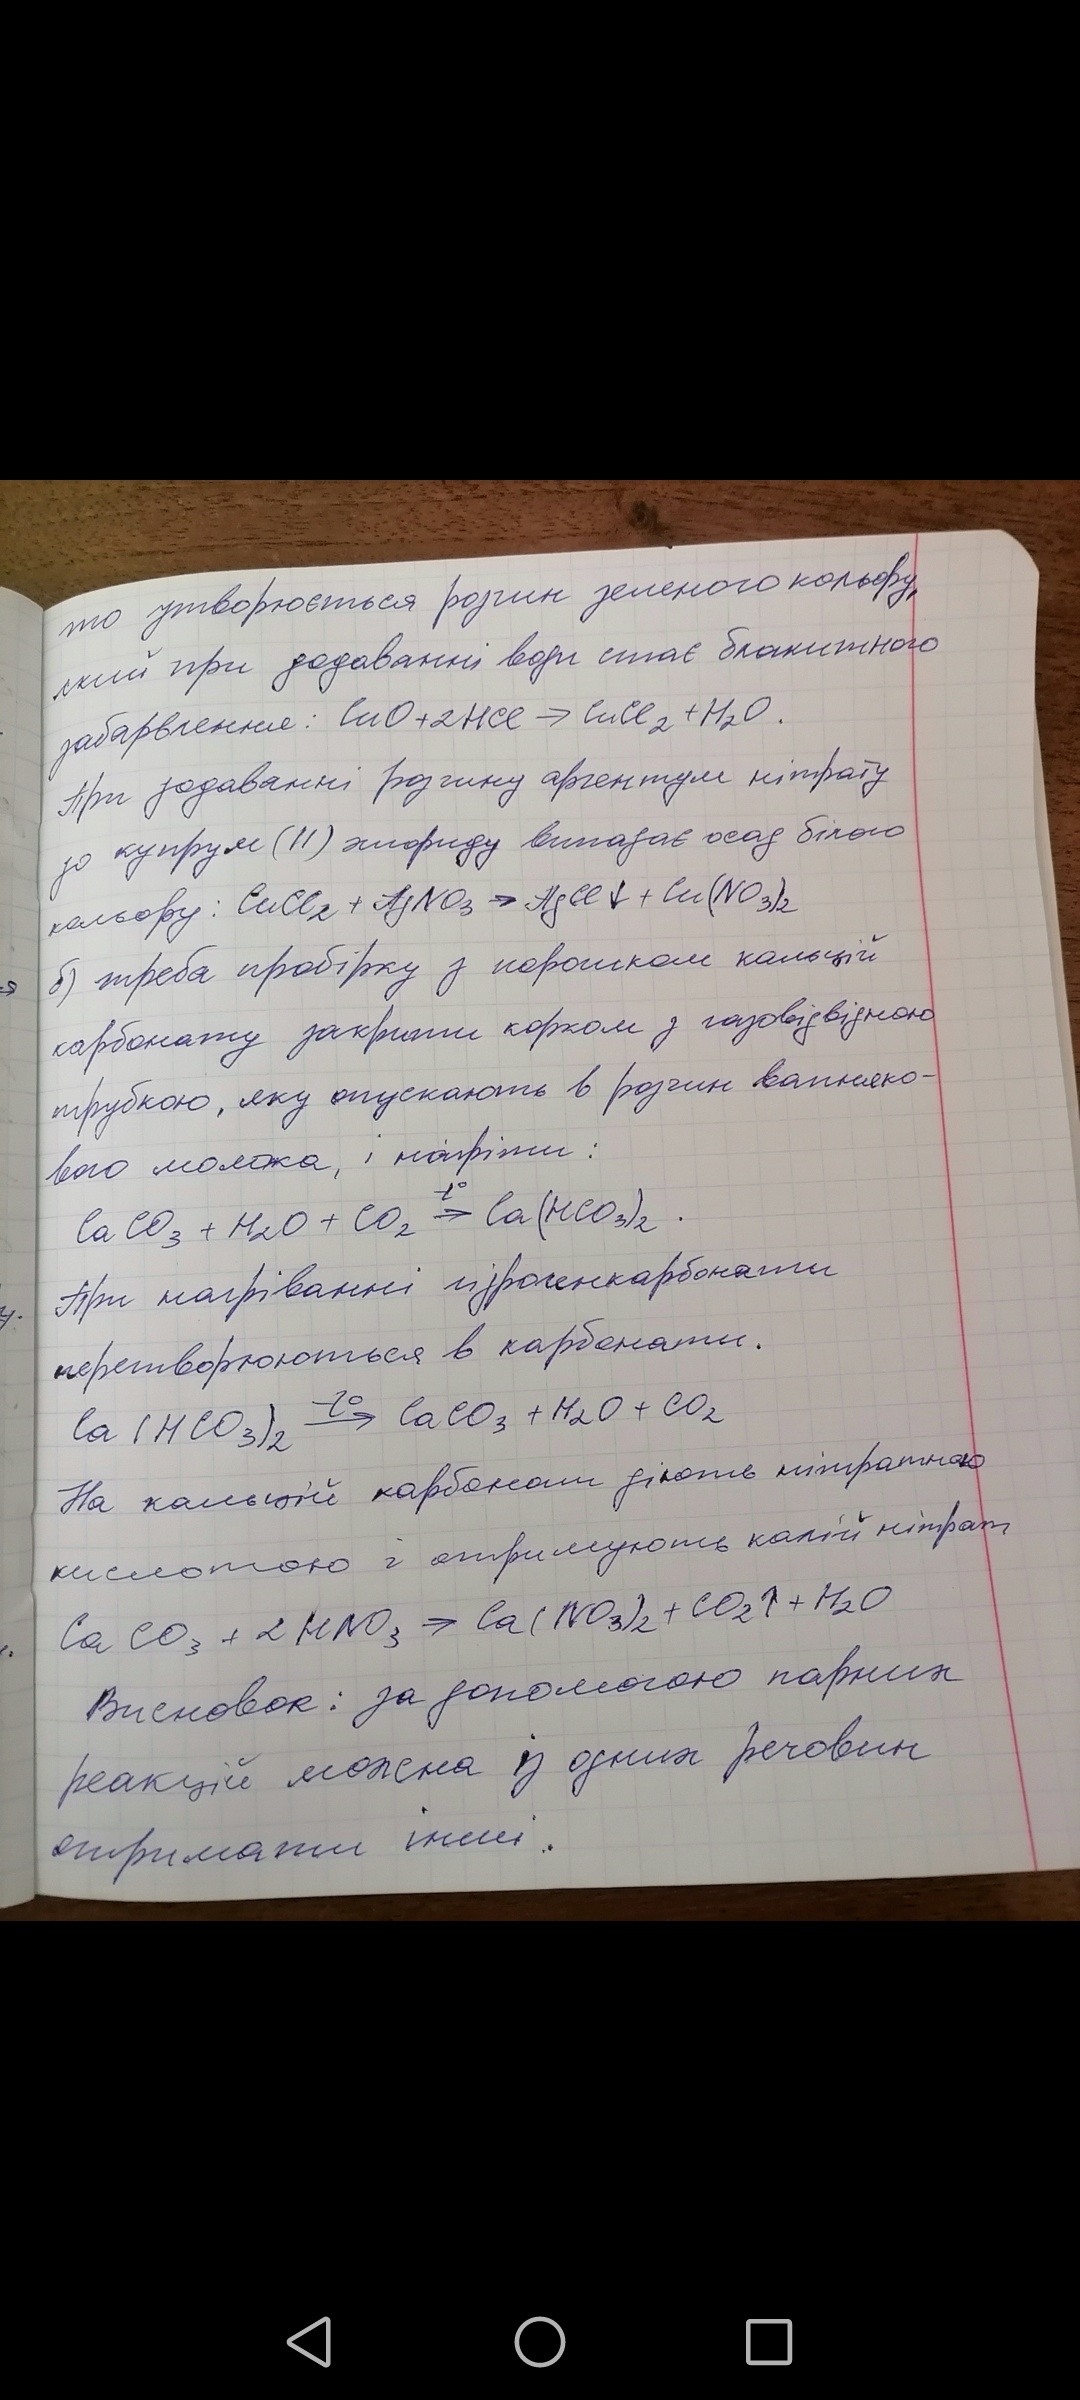 то утворюється розчин зеленого кольору,
який при додаванні води стає блакитного
забарвлення: CuO+2HCl → CuCl₂+H₂O.
При додаванні розчину аргентум нітрату
до купрум (II) хлориду випадає осад білого
кольору: CuCl₂ + AgNO₃ → AgCl↓ + Cu(NO₃)₂
б) треба пробірку з порошком кальцій
карбонату закрити корком з газовідвідною
трубкою, яку опускають в розчин вапняко-
вого молока, і нагріти:
CaCO₃ + H₂O + CO₂ t°⇒ Ca(HCO₃)₂.
При нагріванні гідрогенкарбонати
перетворюються в карбонати.
Ca(HCO₃)₂ t°→ CaCO₃ + H₂O + CO₂
На кальцій карбонат діють нітратною
кислотою і отримують калій нітрат
CaCO₃ + 2HNO₃ → Ca(NO₃)₂ + CO₂↑ + H₂O
Висновок: за допомогою парних
реакцій можна із одних речовин
отримати інші.